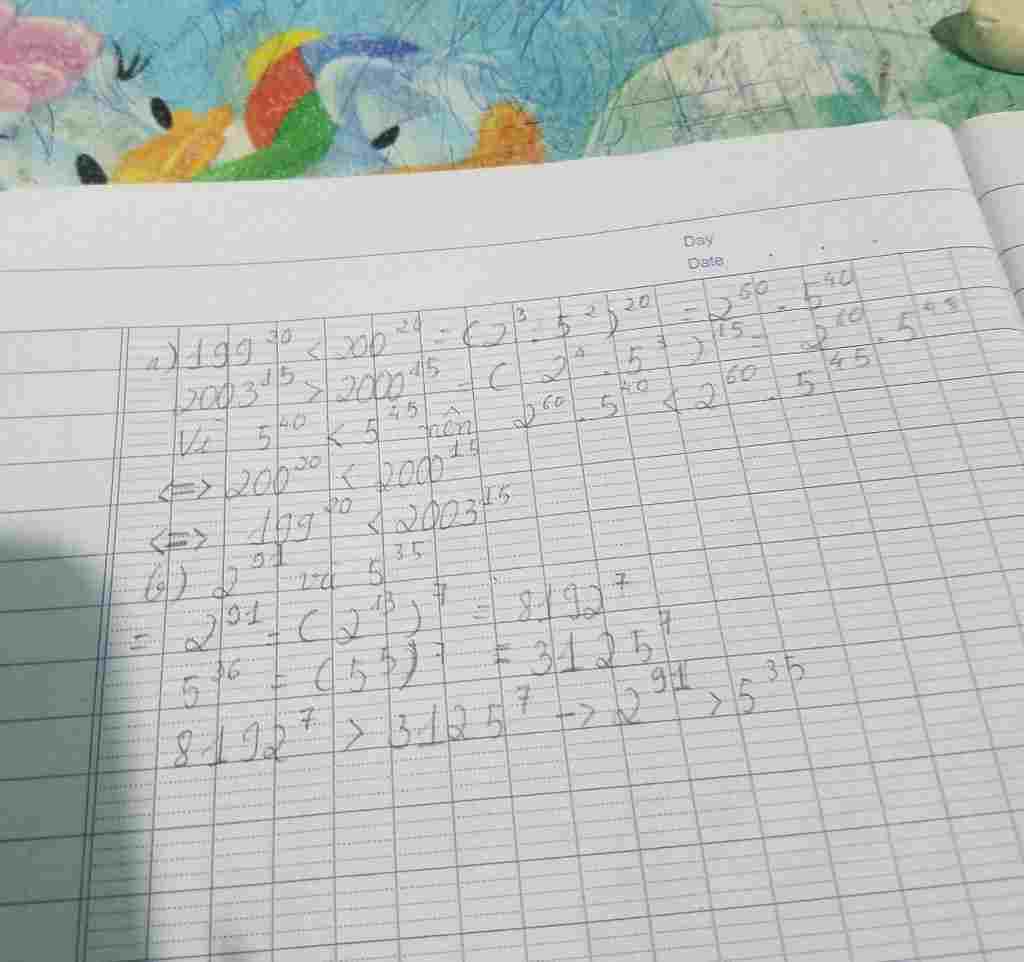 Day
Date
a) 199²⁰ < 200²⁰ = (2³ . 5²)²⁰ = 2⁶⁰ . 5⁴⁰
2003¹⁵ > 2000¹⁵ = (2⁴ . 5³)¹⁵ = 2⁶⁰ . 5⁴⁵
Vì 5⁴⁰ < 5⁴⁵ nên 2⁶⁰ . 5⁴⁰ < 2⁶⁰ . 5⁴⁵
<=> 200²⁰ < 2000¹⁵
<=> 199²⁰ < 2003¹⁵
b) 2⁹¹ và 5³⁵
= 2⁹¹ = (2¹³)⁷ = 8192⁷
5³⁶ = (5⁵)⁷ = 3125⁷
8192⁷ > 3125⁷ -> 2⁹¹ > 5³⁵